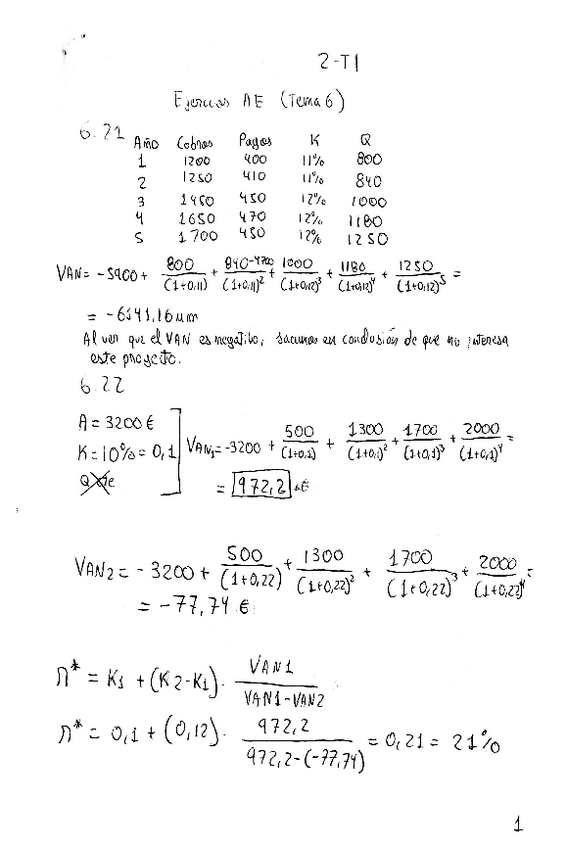 2-T1
Ejercicios AE (Tema 6)
6.21
Año Cobros Pagos K Q
1 1200 400 11% 800
2 1250 410 11% 840
3 1450 450 12% 1000
4 1650 470 12% 1180
5 1700 450 12% 1250
VAN = -5900 + 800/(1+0,11) + 840-4700/(1+0,11)² + 1000/(1+0,12)³ + 1180/(1+0,12)⁴ + 1250/(1+0,12)⁵ =
= -6141,16 um
Al ver que el VAN es negativo, sacamos en conclusión de que no interesa
este proyecto.
6.22
A = 3200 €
K = 10% = 0,1
VAN₁ = -3200 + 500/(1+0,1) + 1300/(1+0,1)² + 1700/(1+0,1)³ + 2000/(1+0,1)⁴ =
= 972,2 €
VAN2 = -3200 + 500/(1+0,22) + 1300/(1+0,22)² + 1700/(1+0,22)³ + 2000/(1+0,22)⁴ =
= -77,74 €
r* = K1 + (K2-K1) · VAN1/VAN1-VAN2
r* = 0,1 + (0,12) · 972,2/972,2-(-77,74) = 0,21 = 21%
1